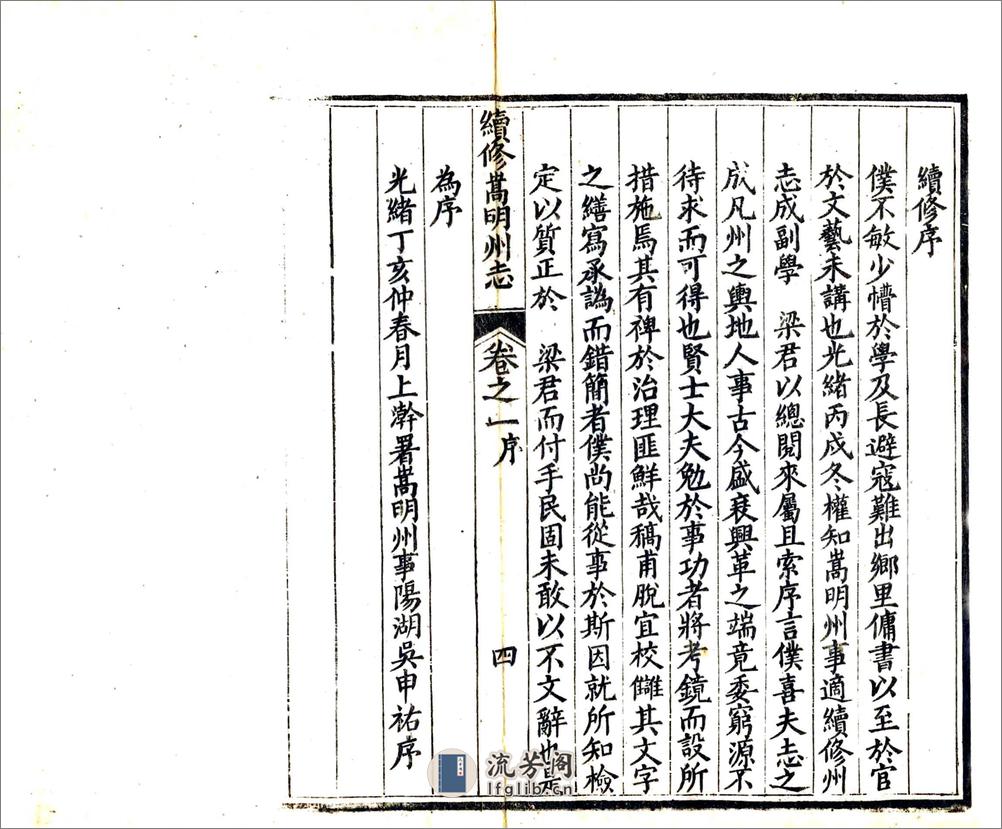 續修序
僕不敏少懵於學及長避寇難出鄉里傭書以至於官
於文藝未講也光緒丙戌冬權知嵩明州事適續修州
志成副學　梁君以總閱來屬且索序言僕喜夫志之
成凡州之輿地人事古今盛衰興革之端竟委窮源不
待求而可得也賢士大夫勉於事功者將考鏡而設所
措施焉其有裨於治理匪鮮哉稿甫脫宜校讎其文字
之繕寫承譌而錯簡者僕尚能從事於斯因就所知檢
定以質正於　梁君而付手民固未敢以不文辭也是
續修嵩明州志
卷之一序
四
為序
光緒丁亥仲春月上澣署嵩明州事陽湖吳申祐序
流芳阁
lfglib.cn